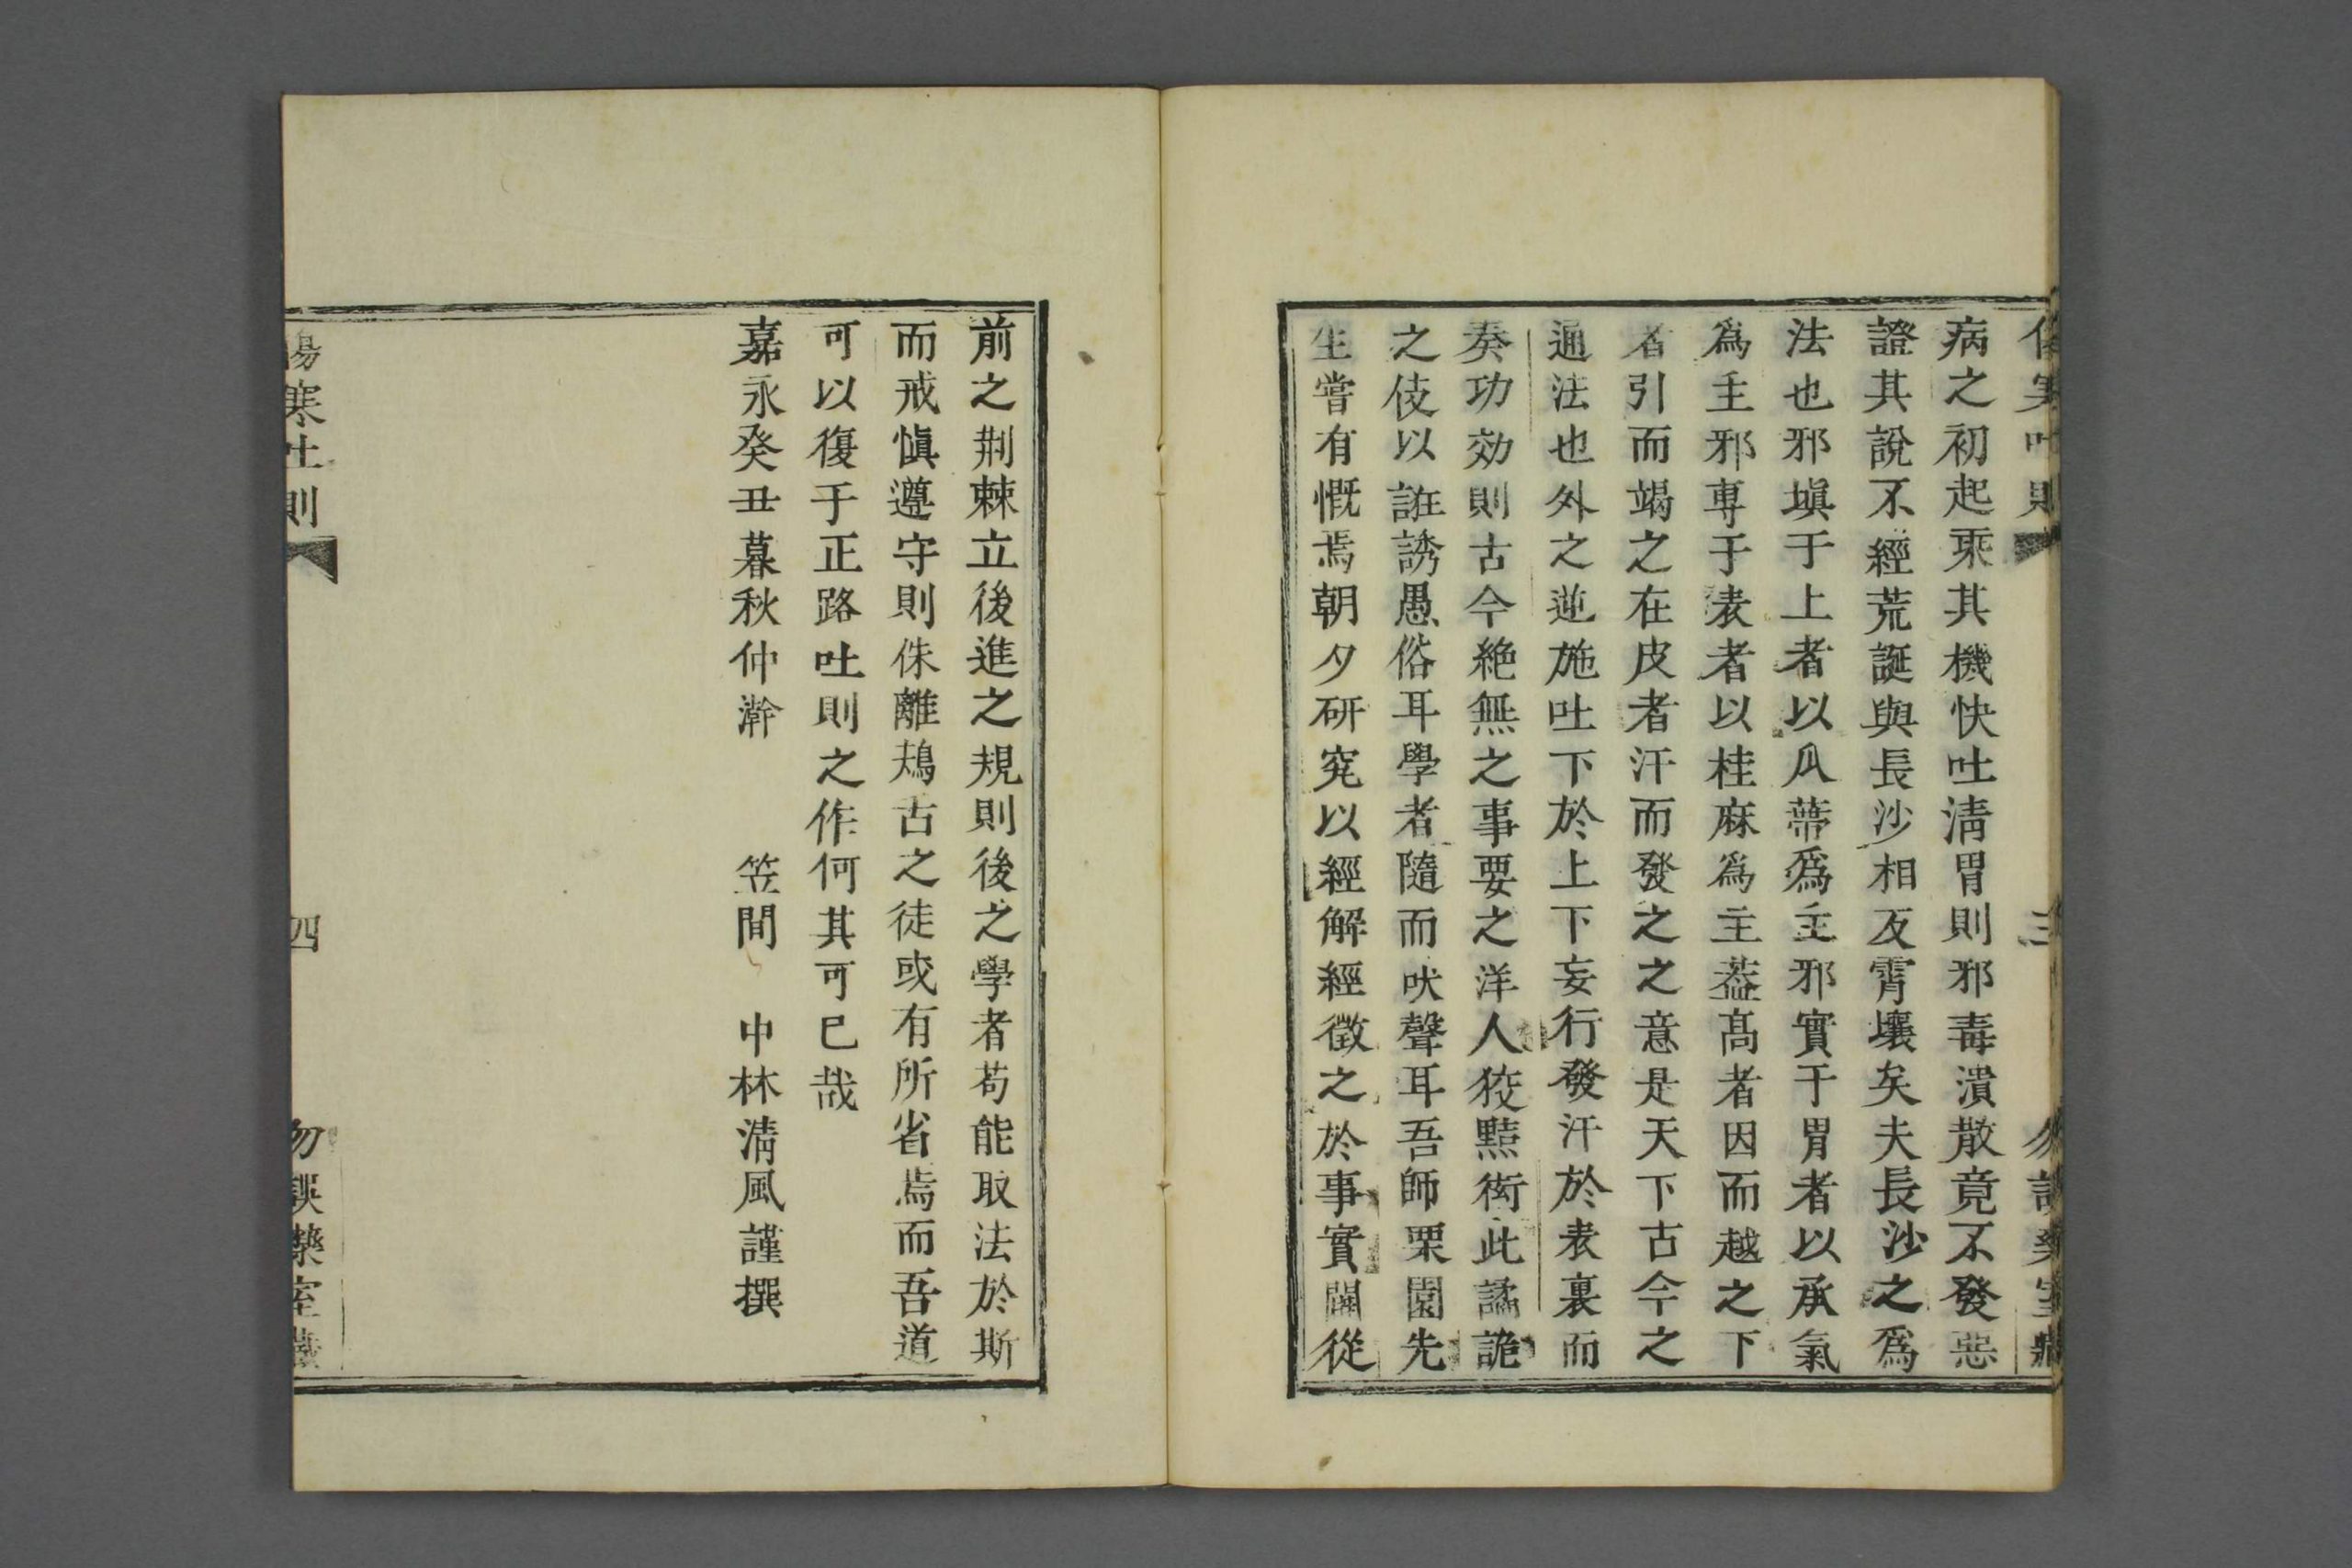 病之初起乘其機快吐淸胃則邪毒潰散竟不發惡
證其說不經荒誕與長沙相反霄壤矣夫長沙之爲
法也邪塡于上者以瓜蒂爲主邪實于胃者以承氣
爲主邪專于表者以桂麻爲主葢髙者因而越之下
者引而竭之在皮者汗而發之之意是天下古今之
通法也外之逆施吐下於上下妄行發汗於表裏而
奏功効則古今絶無之事要之洋人狡黠衒此譎詭
之伎以誑誘愚俗耳學者隨而吠聲耳吾師栗園先
生嘗有慨焉朝夕研究以經解經徵之於事實闢從
前之荆棘立後進之規則後之學者苟能取法於斯
而戒愼遵守則侏離鴂古之徒或有所省焉而吾道
可以復于正路吐則之作何其可已哉
嘉永癸丑暮秋仲澣 笠間 中林淸風謹撰
傷寒吐則 四 勿誤藥室藏